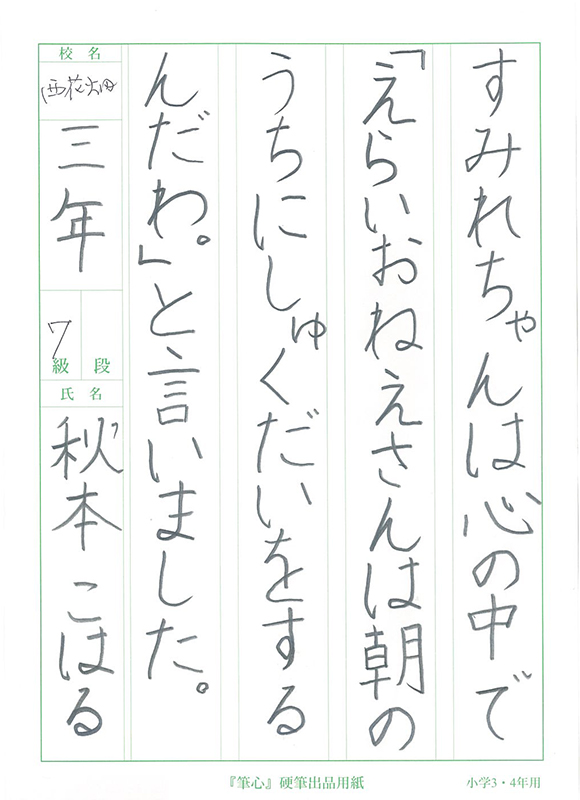 すみれちゃんは心の中で
「えらいおねえさんは朝の
うちにしゅくだいをする
んだわ。」と言いました。
校名
西花畑
三年
7
級 段
氏名
秋本 こはる
『筆心』硬筆出品用紙
小学3・4年用